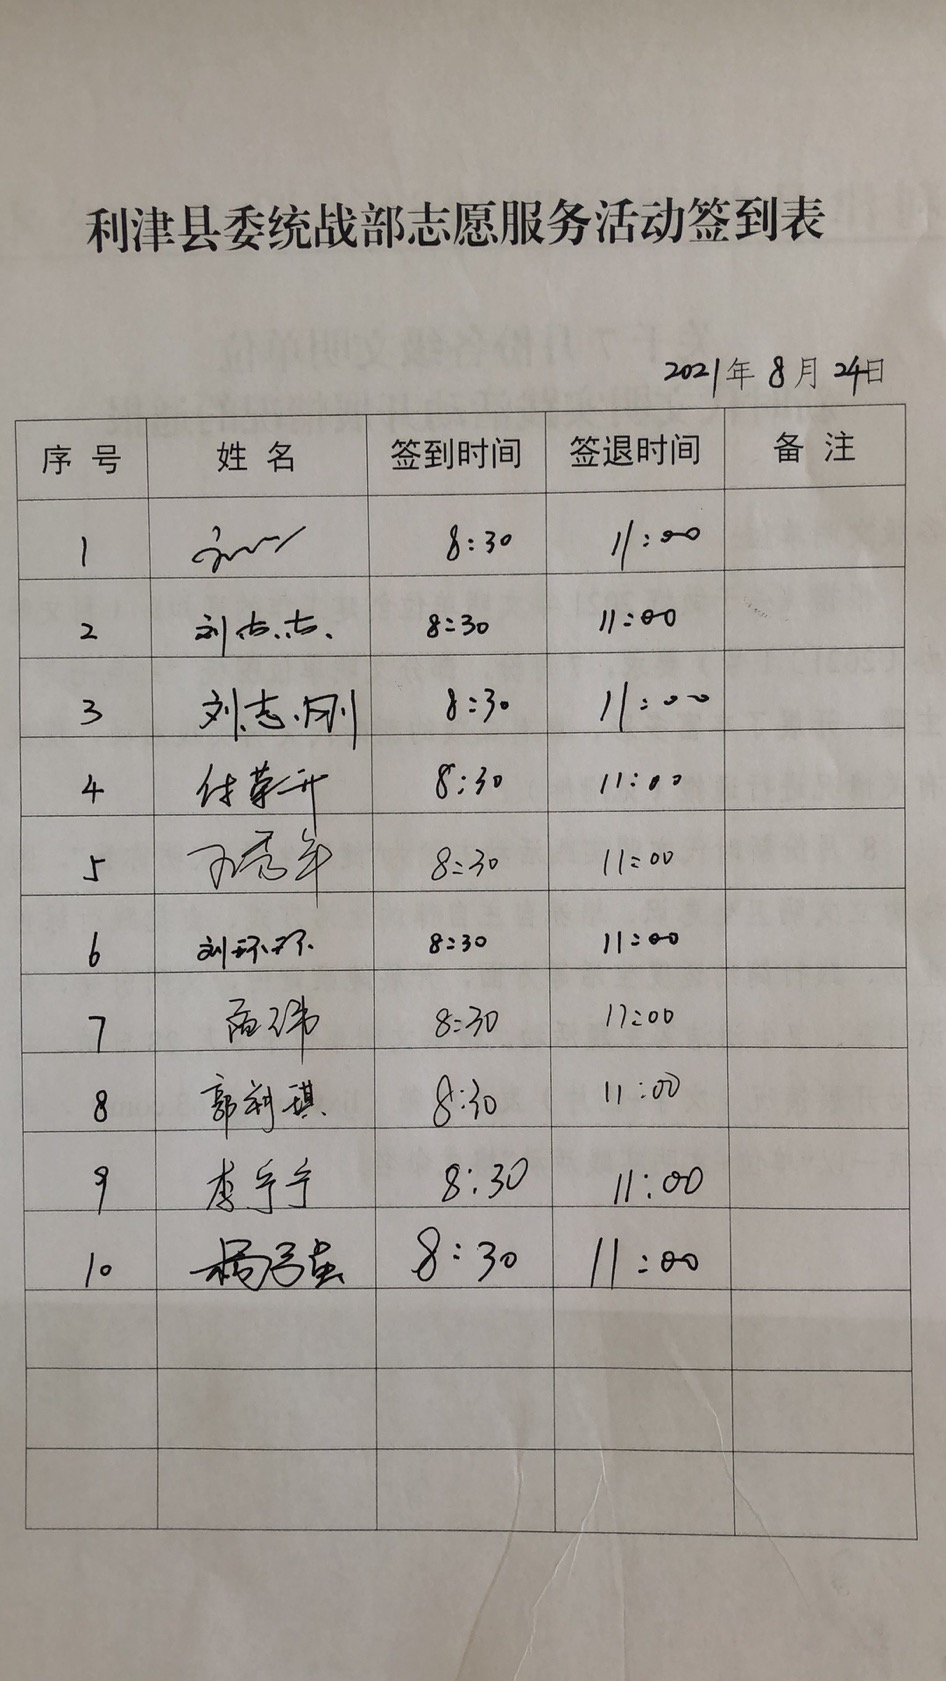 利津县委统战部志愿服务活动签到表
2021年8月24日
序号 姓名 签到时间 签退时间 备注
1 8:30 11:00
2 刘 8:30 11:00
3 刘志刚 8:30 11:00
4 付荣升 8:30 11:00
5 8:30 11:00
6 刘环环 8:30 11:00
7 8:30 11:00
8 郭利琪 8:30 11:00
9 李宁宁 8:30 11:00
10 8:30 11:00